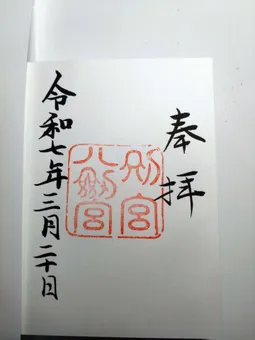 奉拝
別宮
八剱宮
令和七年三月二十日